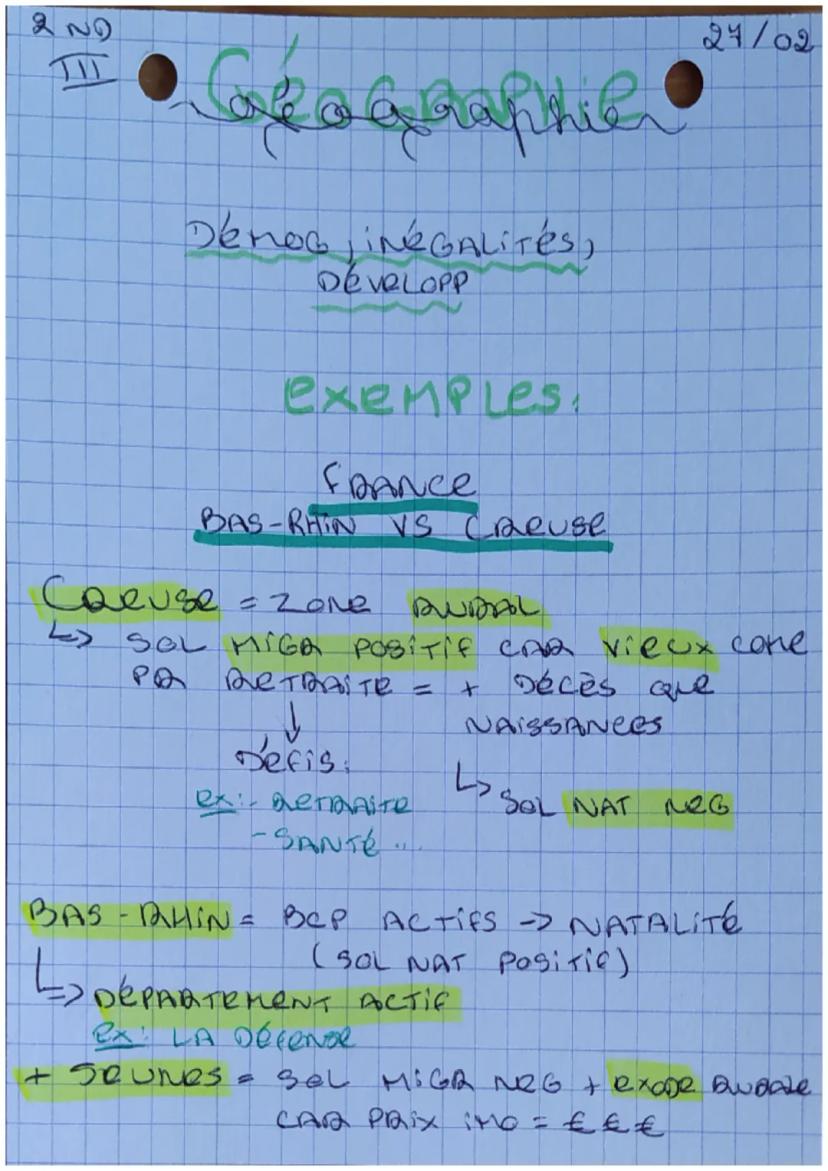 2ND
III
27/02
Géographie
DÉMOG, iNÉGALiTÉS,
DÉVELOPP
EXEMPLES:
FRANCE
BAS-RHiN VS CREUSE
CREUSE = ZONE RURAL
↳ SOL MiGR POSiTiF CAR ViEUX COME
PR RETRAiTE = + DÉCÈS QUE
NAiSSANCES
↓
DÉFiS:
↳ SOL NAT NEG
ex: - RETRAiTE
- SANTÉ ...
BAS-RHiN = BCP ACTiFS -> NATALiTÉ
(SOL NAT POSiTiF)
↳ DÉPARTEMENT ACTiF
ex: LA DÉFENSE
+ JEUNES = SOL MiGR NEG + EXODE RURALE
CAR PRiX iMO = €€€